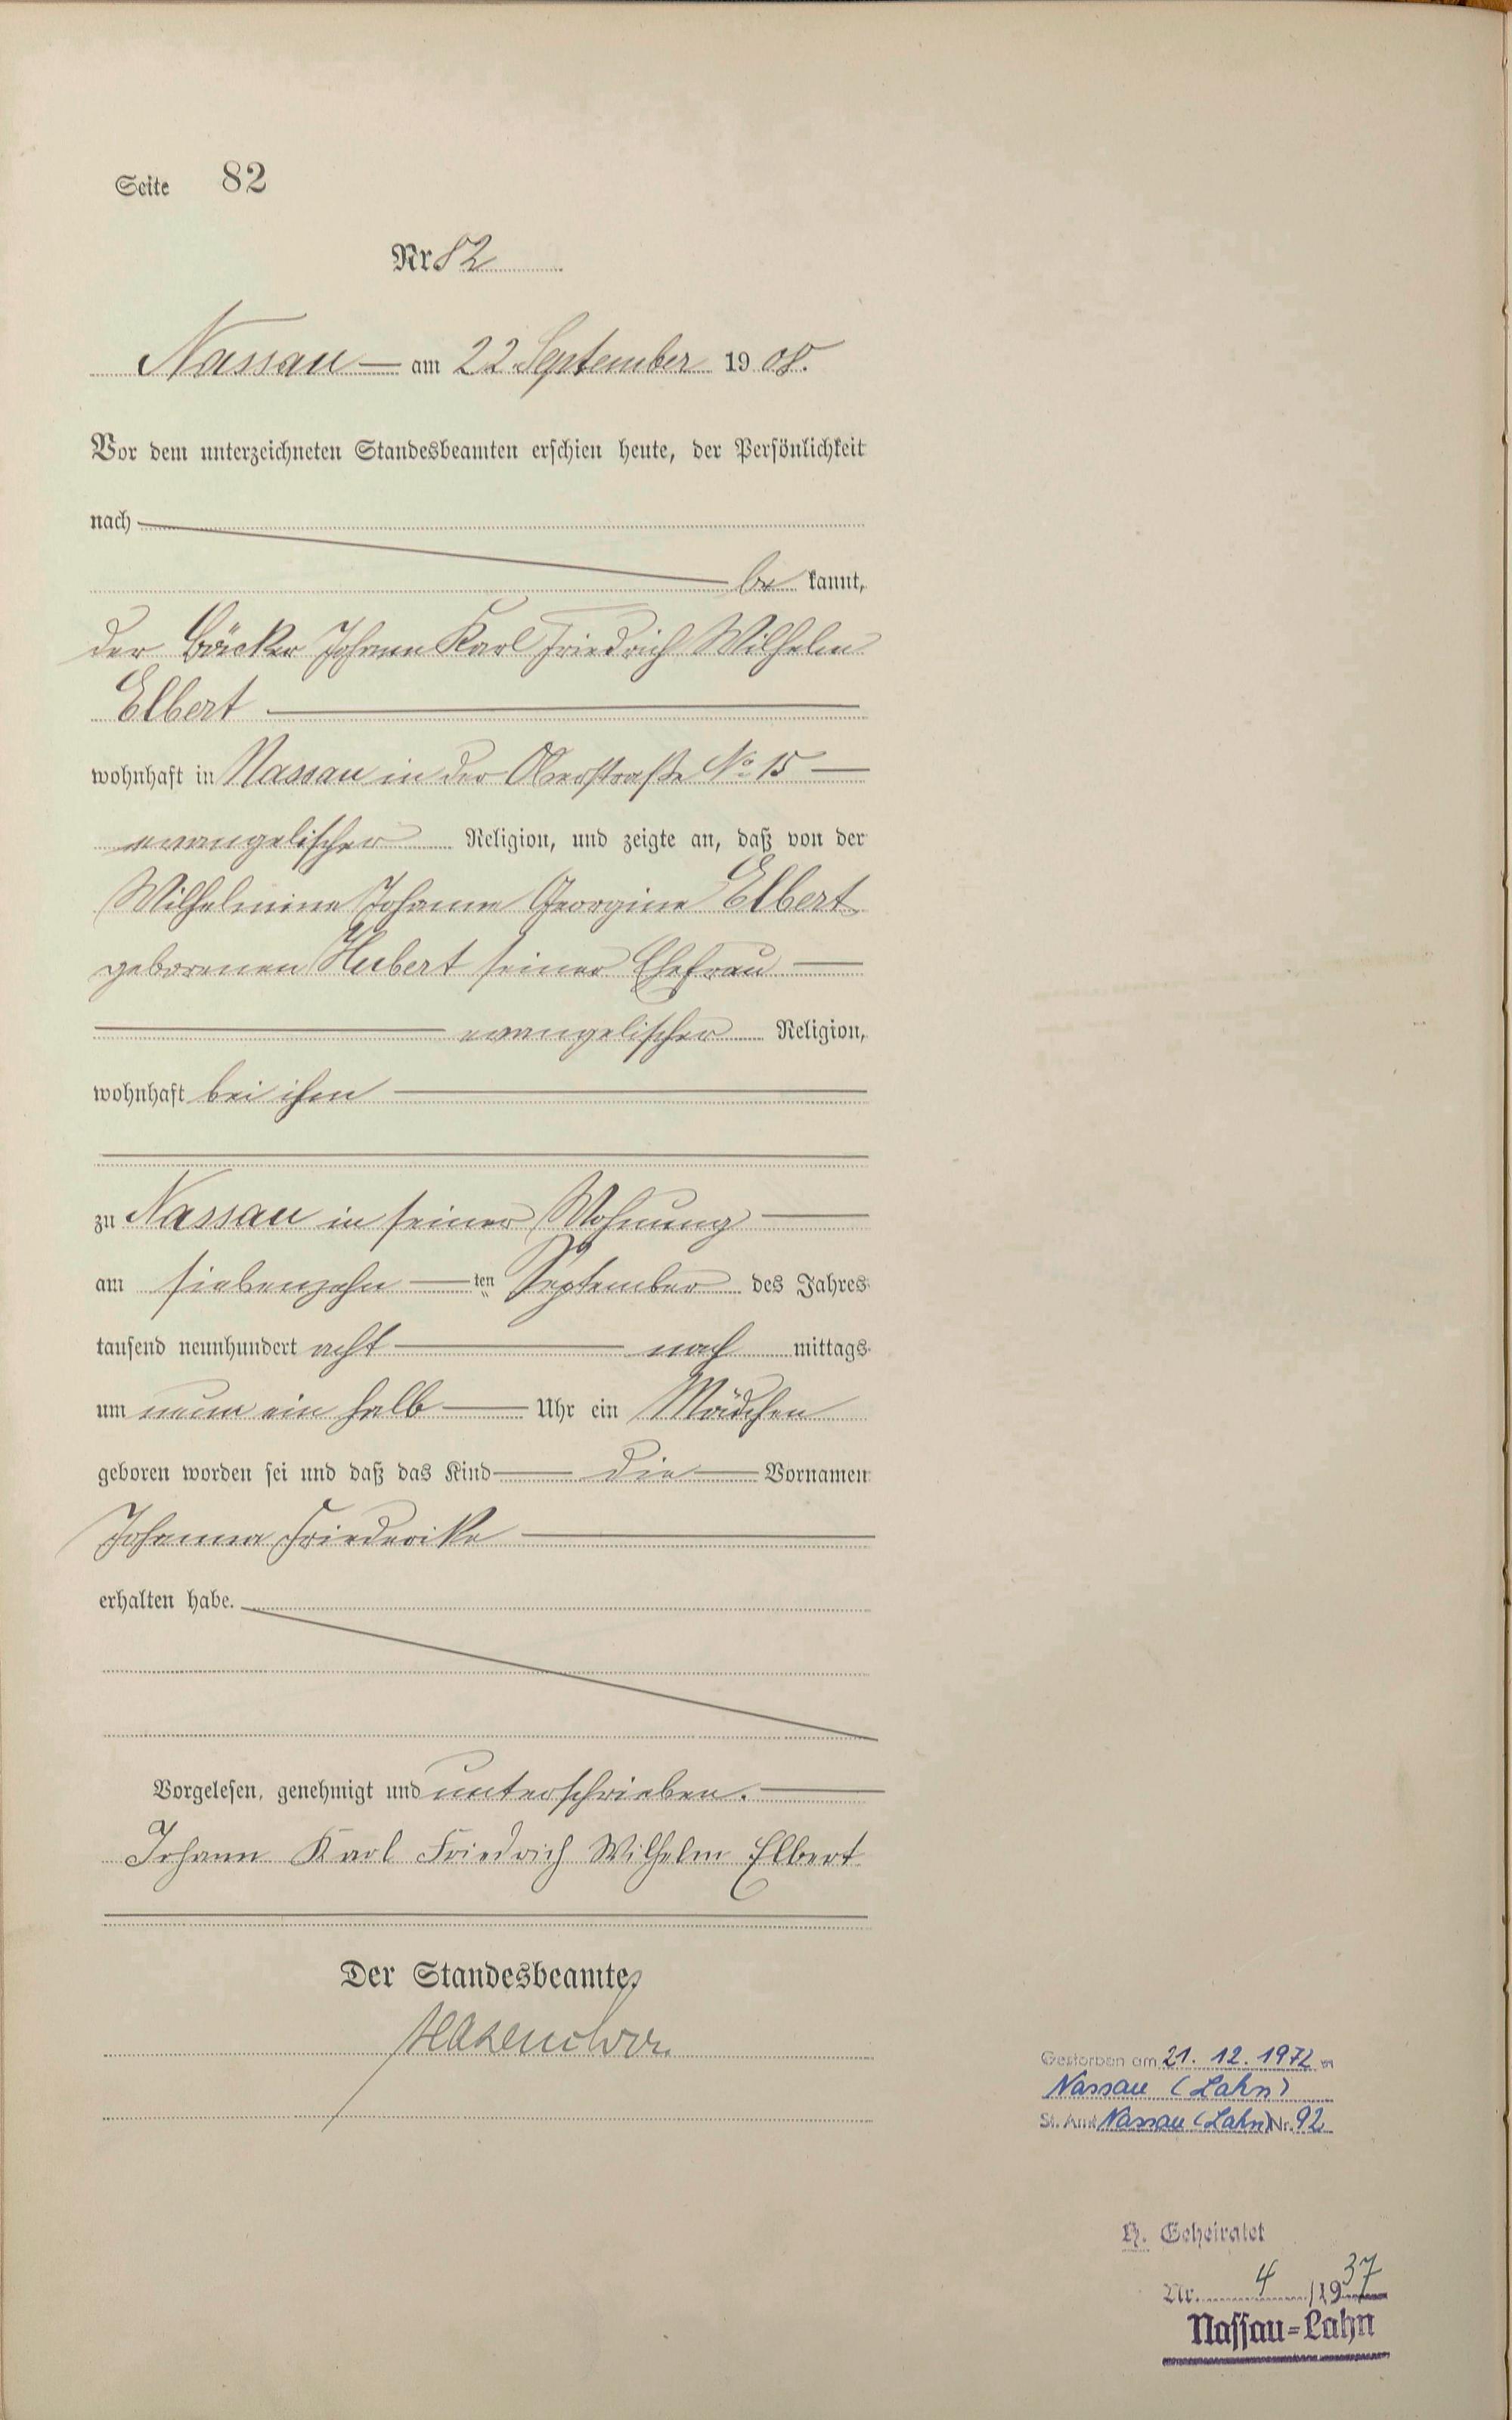 Seite 82
Nr. 82
Nassau — am 22 September 1908.
Vor dem unterzeichneten Standesbeamten erschien heute, der Persönlichkeit
nach
be kannt,
der Bäcker Johann Karl Friedrich Wilhelm
Elbert
wohnhaft in Nassau in der Oberstraße No 15
evangelischer Religion, und zeigte an, daß von der
Wilhelmine Johanne Georgine Elbert
geborenen Hubert seiner Ehefrau
evangelischer Religion,
wohnhaft bei ihm
zu Nassau in seiner Wohnung
am siebenzehn ten September des Jahres
tausend neunhundert acht nach mittags
um neun ein halb Uhr ein Mädchen
geboren worden sei und daß das Kind die Vornamen
Johanna Friederike
erhalten habe.
Vorgelesen, genehmigt und unterschrieben.
Johann Karl Friedrich Wilhelm Elbert
Der Standesbeamte
Gestorben am 21. 12. 1972 in
Nassau (Lahn)
St. Amt Nassau (Lahn) Nr. 92
H. Geheiratet
Nr. 4 /1937
Nassau-Lahn